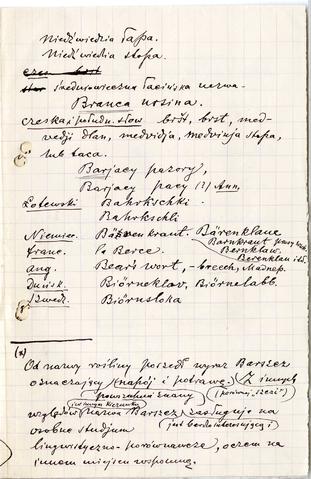 Niedźwiedzia łapa.
Niedźwiedzia stopa.
średniowieczna łacińska nazwa
Branca ursina.
czeska i połudn. słow bršt, brst, med-
vedji dlan, medvidja, medvinja stapa,
lub taca.
Barjacy pazory,
Barjacy pacy (?) Ann.
Łotewski Bahrkschki
Bahrkschli
Niemiec. Bärenkraut. Bärenklaue
Barnkraut
Bernklaw.
Berenklau itd.
franc. la Berce.
ang. Bear's wort, - breech, Madnep.
Duńsk. Biörneklov, Biörnelabb.
Szwedz. Biörnsloka
(x)
Od nazwy rośliny poszedł wyraz Barszcz
oznaczający napój i potrawę. Z innych
powszechnie znany
względów nazwa Barszcz zasługuje na
jest bardzo interesującą i
osobne studjum
lingwistyczno-porównawcze, o czem na
innem miejscu wspomnę.